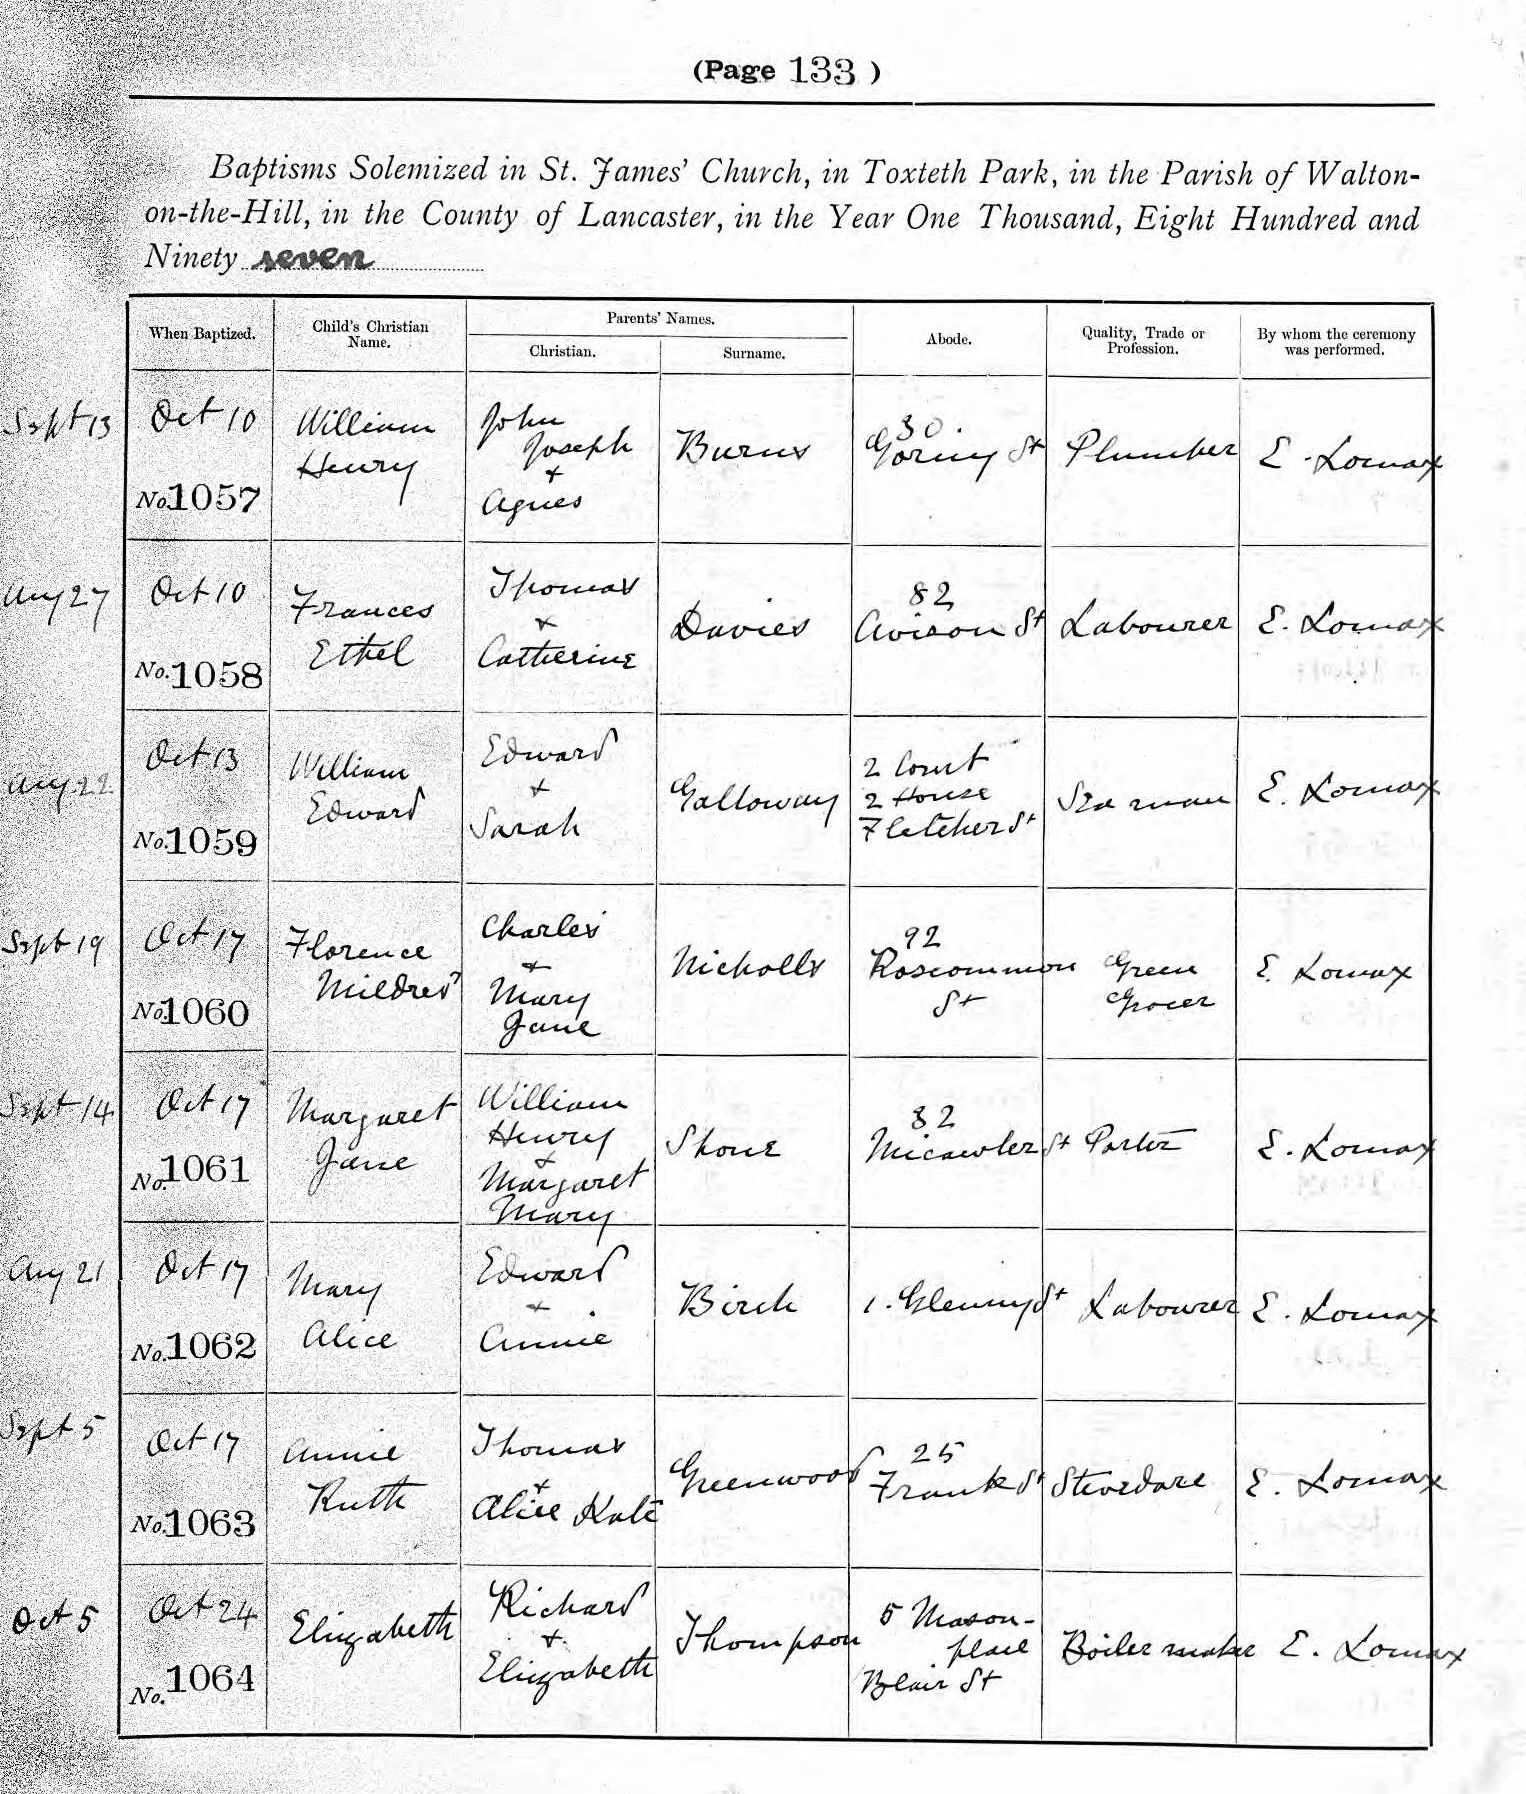 (Page 133 )
Baptisms Solemized in St. James' Church, in Toxteth Park, in the Parish of Walton-
on-the-Hill, in the County of Lancaster, in the Year One Thousand, Eight Hundred and
Ninety seven
When Baptized.
Child's Christian
Name.
Parents' Names.
Christian.
Surname.
Abode.
Quality, Trade or
Profession.
By whom the ceremony
was performed.
Sept 13
Oct 10
No. 1057
William
Henry
John
Joseph
+
Agnes
Burns
30.
Goring St
Plumber
E. Lomax
Aug 27
Oct 10
No. 1058
Frances
Ethel
Thomas
+
Catherine
Davies
82
Avison St
Labourer
E. Lomax
Aug 22
Oct 13
No. 1059
William
Edward
Edward
+
Sarah
Galloway
2 Court
2 House
Fletcher St
Seaman
E. Lomax
Sept 19
Oct 17
No. 1060
Florence
Mildred
Charles
+
Mary
Jane
Nicholls
92
Roscommon
St
Green
Grocer
E. Lomax
Sept 14
Oct 17
No. 1061
Margaret
Jane
William
Henry
+
Margaret
Mary
Shone
82
Micawber St
Porter
E. Lomax
Aug 21
Oct 17
No. 1062
Mary
Alice
Edward
+
Annie
Birch
1. St
Labourer
E. Lomax
Sept 5
Oct 17
No. 1063
Annie
Ruth
Thomas
+
Alice Kate
Greenwood
25
Frank St
E. Lomax
Oct 5
Oct 24
No. 1064
Elizabeth
Richard
+
Elizabeth
Thompson
5 Mason-
place
Blair St
Boiler maker
E. Lomax